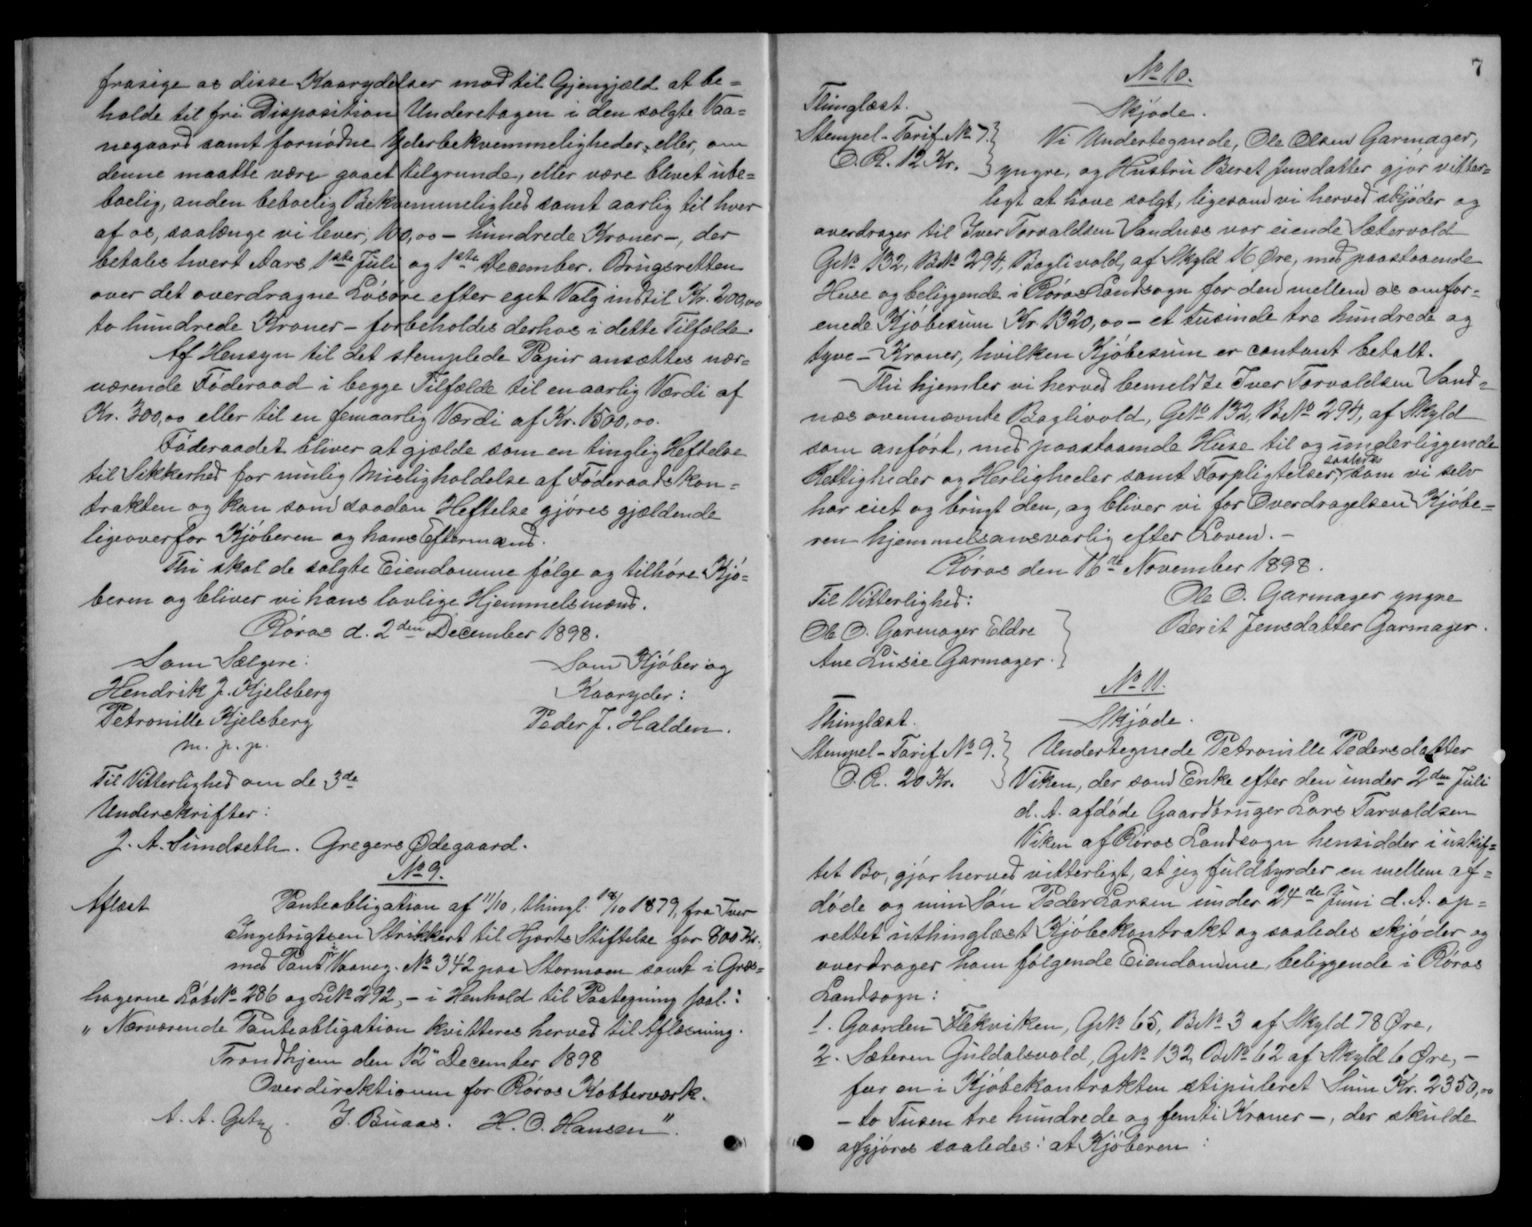 frasige os disse Kaarydelser mod til Gjengjæld at be-
holde til fri Disposition Underetagen i den solgte Vaa-
negaard samt fornødne Yderbekvemmeligheder, eller, om
denne maatte være gaaet tilgrunde, eller være blevet ube-
boelig, anden beboelig Bekvemmelighed samt aarlig til hver
af os, saalænge vi lever, 100,00 - hundrede Kroner -, der
betales hvert Aars 1ste Juli og 1ste December. Brugsretten
over det overdragne Løsøre efter eget Valg indtil Kr. 200,00
to hundrede Kroner - forbeholdes derhos i dette Tilfælde.
Af Hensyn til det stemplede Papir ansættes nær-
værende Føderaad i begge Tilfælde til en aarlig Værdi af
Kr. 300,00 eller til en femaarlig Værdi af Kr. 1500,00.
Føderaadet bliver at gjælde som en tinglig Heftelse
til Sikkerhed for mulig Misligholdelse af Føderaadskon-
trakten og kan som saadan Heftelse gjøres gjældende
ligeoverfor Kjøberen og hans Eftermænd.
Thi skal de solgte Eiendomme følge og tilhøre Kjø-
beren og bliver vi hans lovlige Hjemmelsmænd.
Røros d. 2den December 1898.
Som Sælgere: Som Kjøber og
Hendrik J. Kjelsberg Kaaryder:
Petronille Kjelsberg Peder J. Halden.
m. p. p.
Til Vitterlighed om de 3de
Underskrifter:
J. A. Sundseth. Gregers Ødegaard.
No 9.
Aflæst Panteobligation af 11/10, thingl. 18/10 1879, fra Iver
Ingebrigtsen Strikkert til Hjorts Stiftelse for 800 Kr.,
med Pant i Vaaneg. No 342 paa Stormoen samt i Græs-
hagerne LøbNo 286 og LNo 292, - i Henhold til Paategning saal.:
" Nærværende Panteobligation kvitteres herved til Aflæsning.
Trondhjem den 12" December 1898
Overdirektionen for Røros Kobberværk.
A. A. Getz. J. Buaas. H. O. Hansen".
7
No 10.
Thinglæst. Skjøde.
Stempel-Tarif No 7. Vi Undertegnede, Ole Olsen Garmager,
O. R. 12 Kr. yngre, og Hustru Beret Jensdatter gjør vitter-
ligt at have solgt, ligesom vi herved skjøder og
overdrager til Iver Torvaldsen Sandnæs vor eiende Sætervold
GNo 132, BNo 294, Baglivold, af Skyld 16 Øre, med paastaaende
Huse og beliggende i Røros Landsogn for den mellem os omfor-
enede Kjøbesum Kr 1320,00 - et tusinde tre hundrede og
tyve - Kroner, hvilken Kjøbesum er contant betalt.
Thi hjemler vi herved bemeldte Iver Torvaldsen Sand-
næs ovennævnte Baglivold, GNo 132, BNo 294, af Skyld
som anført, med paastaaende Huse til og underliggende
Rettigheder og Herligheder samt Forpligtelser, saaledes som vi selv
har eiet og brugt den, og bliver vi for Overdragelsen Kjøbe-
ren hjemmelsansvarlig efter Loven. -
Røros den 16de November 1898.
Til Vitterlighed: Ole O. Garmager yngre
Ole O. Garmager Eldre Berit Jensdatter Garmager.
Ane Lusie Garmager.
No 11.
Thinglæst. Skjøde.
Stempel-Tarif No 9. Undertegnede Petronille Pedersdatter
O. R. 20 Kr. Viken, der som Enke efter den under 2den Juli
d. A. afdøde Gaardbruger Lars Tarvaldsen
Viken af Røros Landsogn hensidder i uskif-
tet Bo, gjør herved vitterligt, at jeg fuldbyrder en mellem af-
døde og min Søn Peder Larsen under 24de Juni d. A. op-
rettet uthinglæst Kjøbekontrakt og saaledes skjøder og
overdrager ham følgende Eiendomme, beliggende i Røros
Landsogn:
1. Gaarden Flekviken, GNo 65, BNo 3 af Skyld 78 Øre,
2. Sæteren Guldalsvold, GNo 132, BNo 62 af Skyld 6 Øre, -
for en i Kjøbekontrakten stipuleret Sum Kr. 2350,00
- to Tusen tre hundrede og femti Kroner -, der skulde
afgjøres saaledes: at Kjøberen: